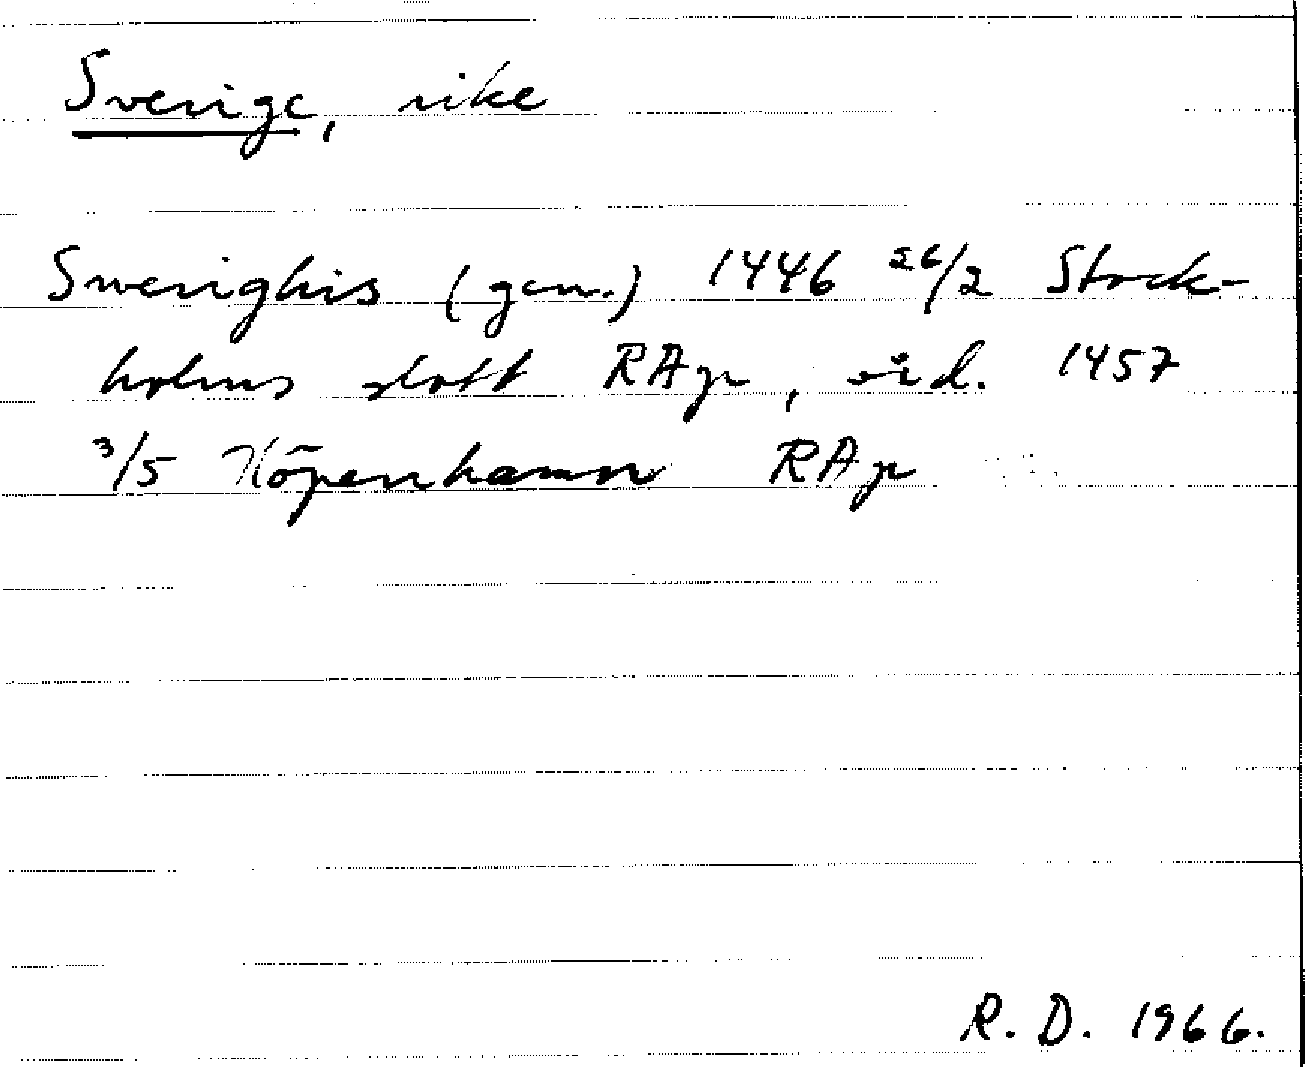 Sverige, rike
Swerighis (gen.) 1446 26/2 Stock-
holms slott RAp, vid. 1457
3/5 Köpenhamn RAp
R. D. 1966.